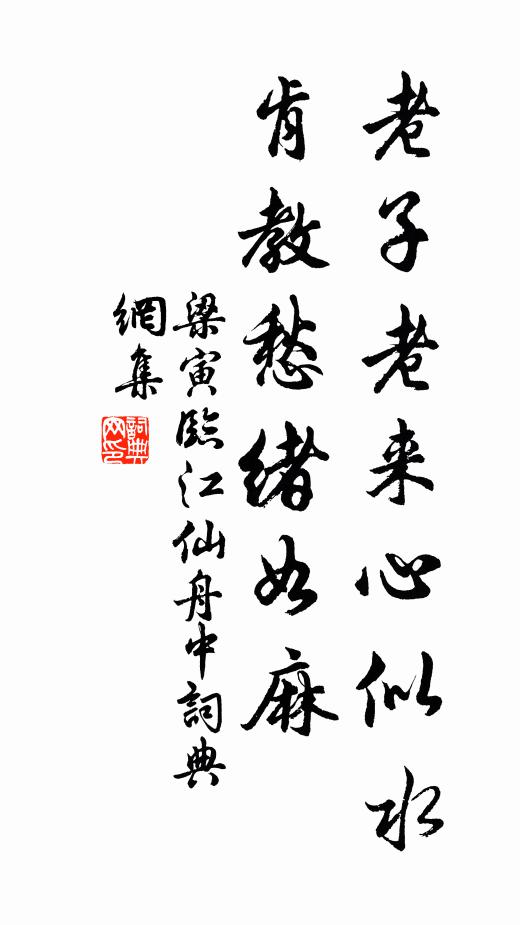 老子老来心似水
肯教愁緒如麻
梁寅臨江仙舟中詞典
網集
詞典網印